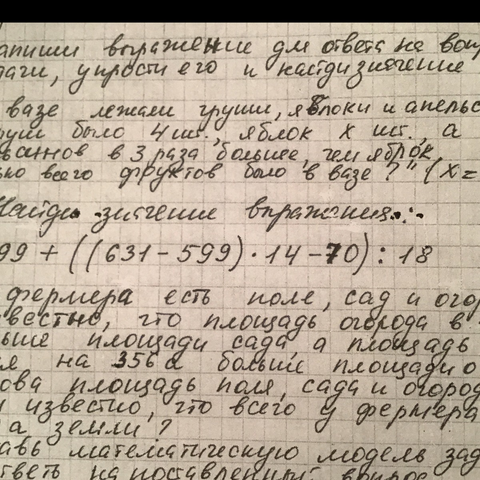 апиши выражение для ответа на вопр
дачи, упрости его и найди значение
вазе лежали груши, яблоки и апельс
руш было 4 шт., яблок x шт., а
в 3 раза больше, чем яблок,
ко всего фруктов было в вазе?" (x =
Найди значение выражения:
99 + ((631 - 599) · 14 - 70) : 18
фермера есть поле, сад и огор
вестно, что площадь огорода в
ьше площади сада а площадь
я на 356 а больше площади о
ова площадь поля, сада и огород
и известно, что всего у фермера
а земли?
авь математическую модель зад
тветь на поставленный вопрос